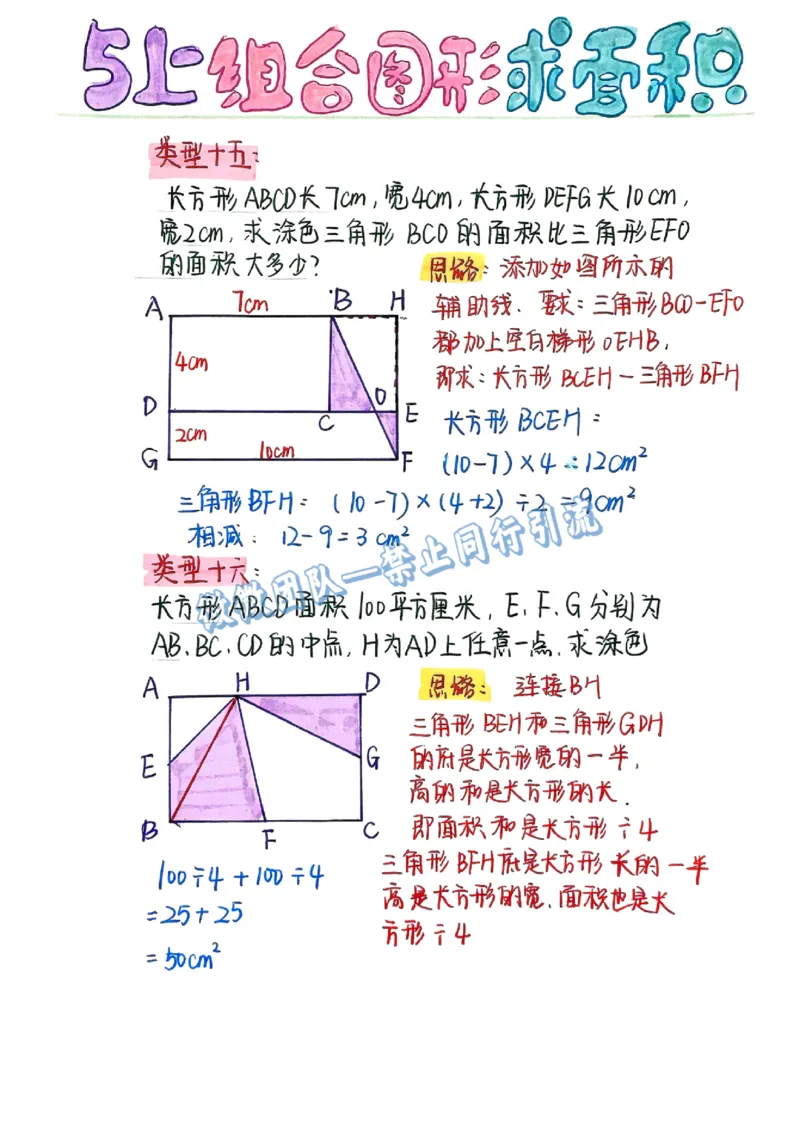 5上组合图形求面积
类型十五:
长方形ABCD长7cm,宽4cm,长方形DEFG长10cm,
宽2cm,求涂色三角形 BCO的面积比三角形EFO
的面积大多少?
思路:添加如图所示的
辅助线、要求:三角形BCO-EFO
都加上空白梯形OEHB,
即求:长方形BCEH-三角形BFH
A 7cm B H
4cm
D C O E
2cm
G 10cm F
长方形BCEH:
(10-7)×4=12cm²
三角形BFH: (10-7)×(4+2)÷2=9cm²
相减: 12-9=3cm²
微微团队—禁止同行引流
类型十六:
长方形ABCD面积100平方厘米,E、F、G分别为
AB、BC、CD的中点,H为AD上任意一点、求涂色
A H D
E G
B F C
思路: 连接BH
三角形BEH和三角形GDH
的底是长方形宽的一半,
高的和是长方形的长.
即面积和是长方形÷4
三角形BFH底是长方形长的一半
高是长方形的宽、面积也是长
方形÷4
100÷4+100÷4
=25+25
=50cm²